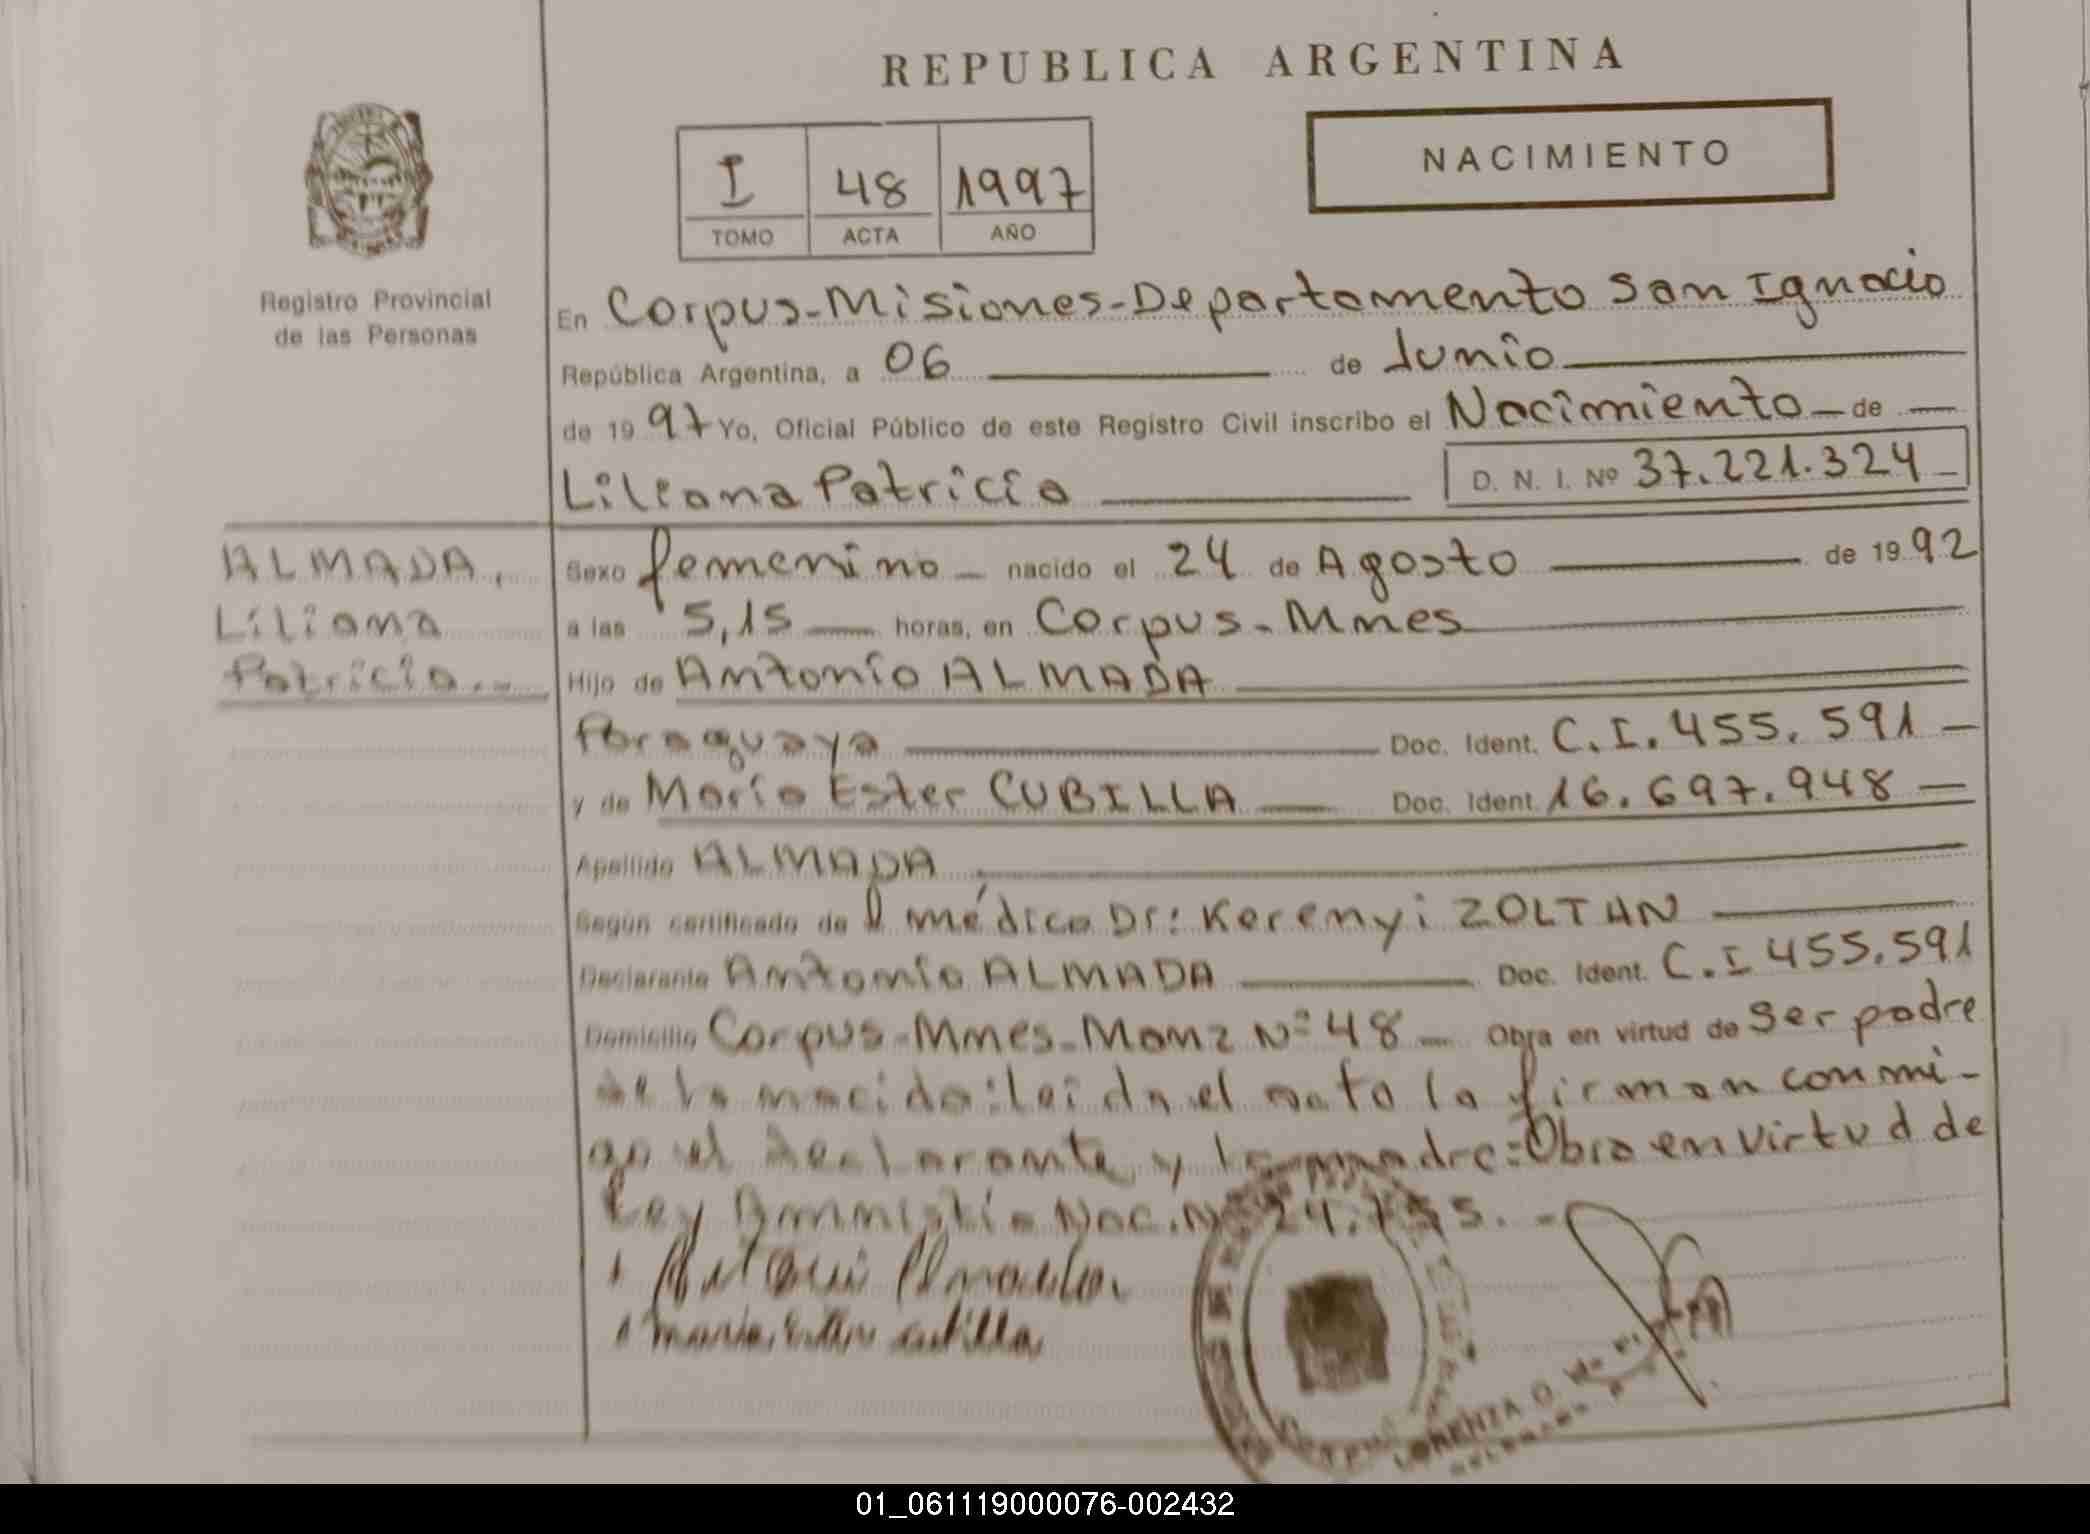 REPUBLICA ARGENTINA
NACIMIENTO
I 48 1997
TOMO ACTA AÑO
Registro Provincial
de las Personas
En Corpus-Misiones-Departamento San Ignacio
República Argentina, a 06 de Junio
de 1997 Yo, Oficial Público de este Registro Civil inscribo el Nacimiento de
Liliana Patricia D. N. I. Nº 37.221.324
ALMADA,
Liliana
Patricia
Sexo femenino nacido el 24 de Agosto de 1992
a las 5,15 horas, en Corpus-Mnes
Hijo de Antonio ALMADA
Paraguaya Doc. Ident. C.I. 455.591
y de María Ester CUBILLA Doc. Ident. 16.697.948
Apellido ALMADA
Según certificado del médico Dr: Kerenyi ZOLTAN
Declarante Antonio ALMADA Doc. Ident. C.I 455.591
Domicilio Corpus-Mnes-Manz Nº 48 Obra en virtud de ser padre
de la nacida: leida el acta la firman conmi-
go el declarante y la madre: Obra en virtud de
Ley Amnistía Nac. Nº 24.755.
Antonio Almada
maria Ester cubilla
LORENZA O.
01_061119000076-002432